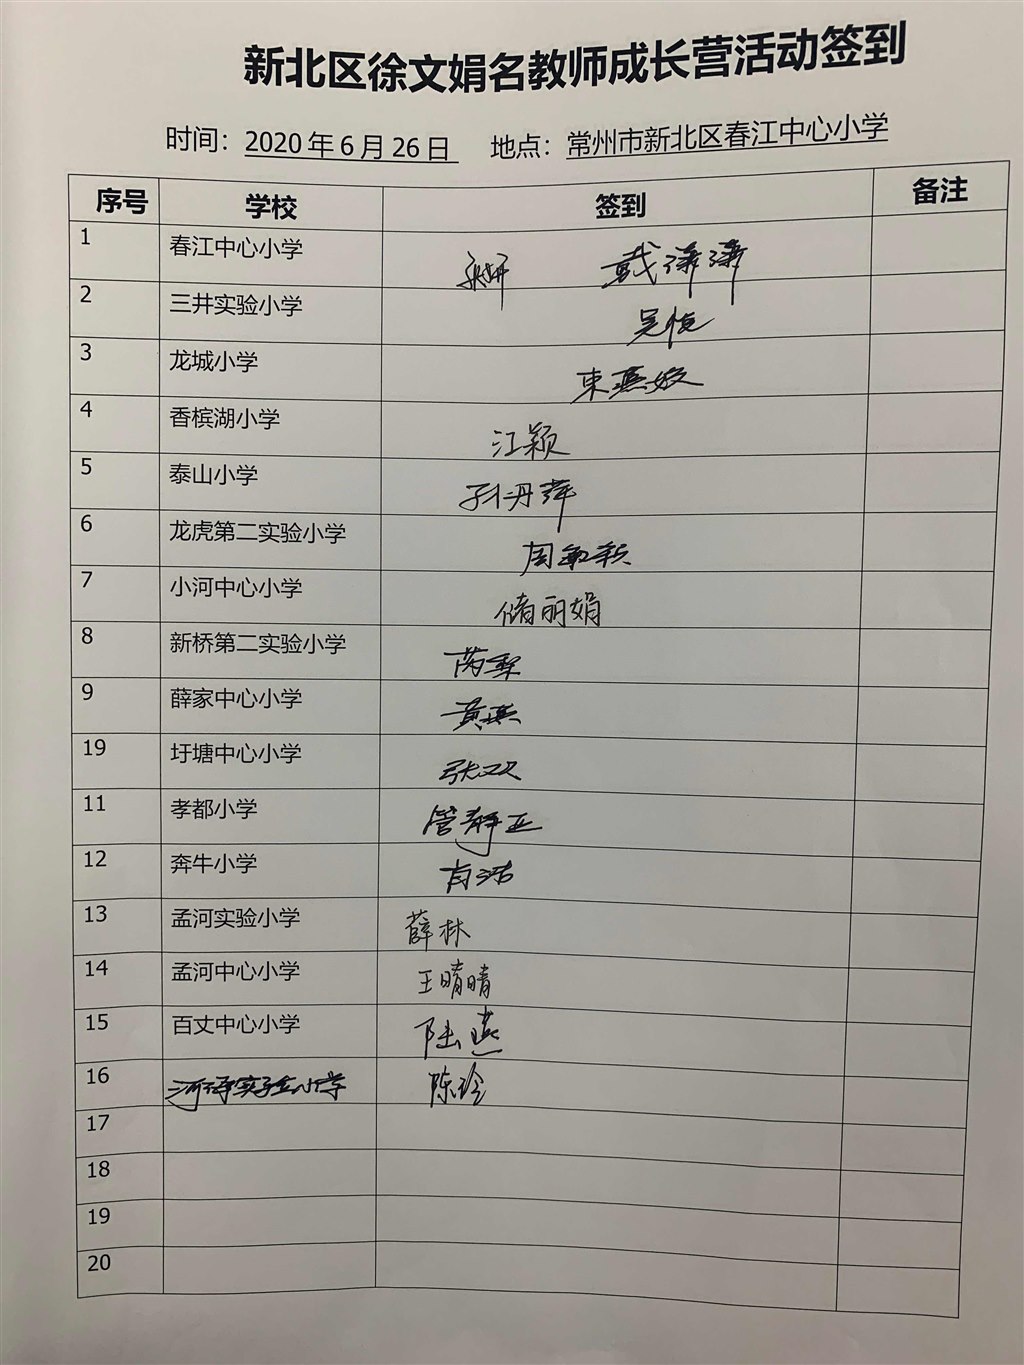 新北区徐文娟名教师成长营活动签到
时间：2020年6月26日 地点：常州市新北区春江中心小学
序号 学校 签到 备注
1 春江中心小学
2 三井实验小学
3 龙城小学
4 香槟湖小学 江颖
5 泰山小学 孙丹萍
6 龙虎第二实验小学
7 小河中心小学 储丽娟
8 新桥第二实验小学
9 薛家中心小学
19 圩塘中心小学 张双
11 孝都小学 管静亚
12 奔牛小学
13 孟河实验小学 薛林
14 孟河中心小学 王晴晴
15 百丈中心小学 陆燕
16 陈玲
17
18
19
20